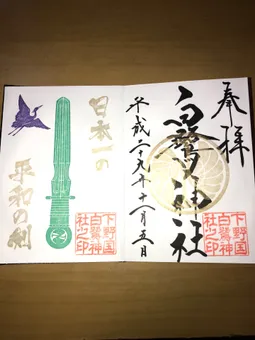 奉拝
白鷺神社
平成二十九年十一月五日
下野国
白鷺神
社之印
日本一の
平和の剣
下野国
白鷺神
社之印